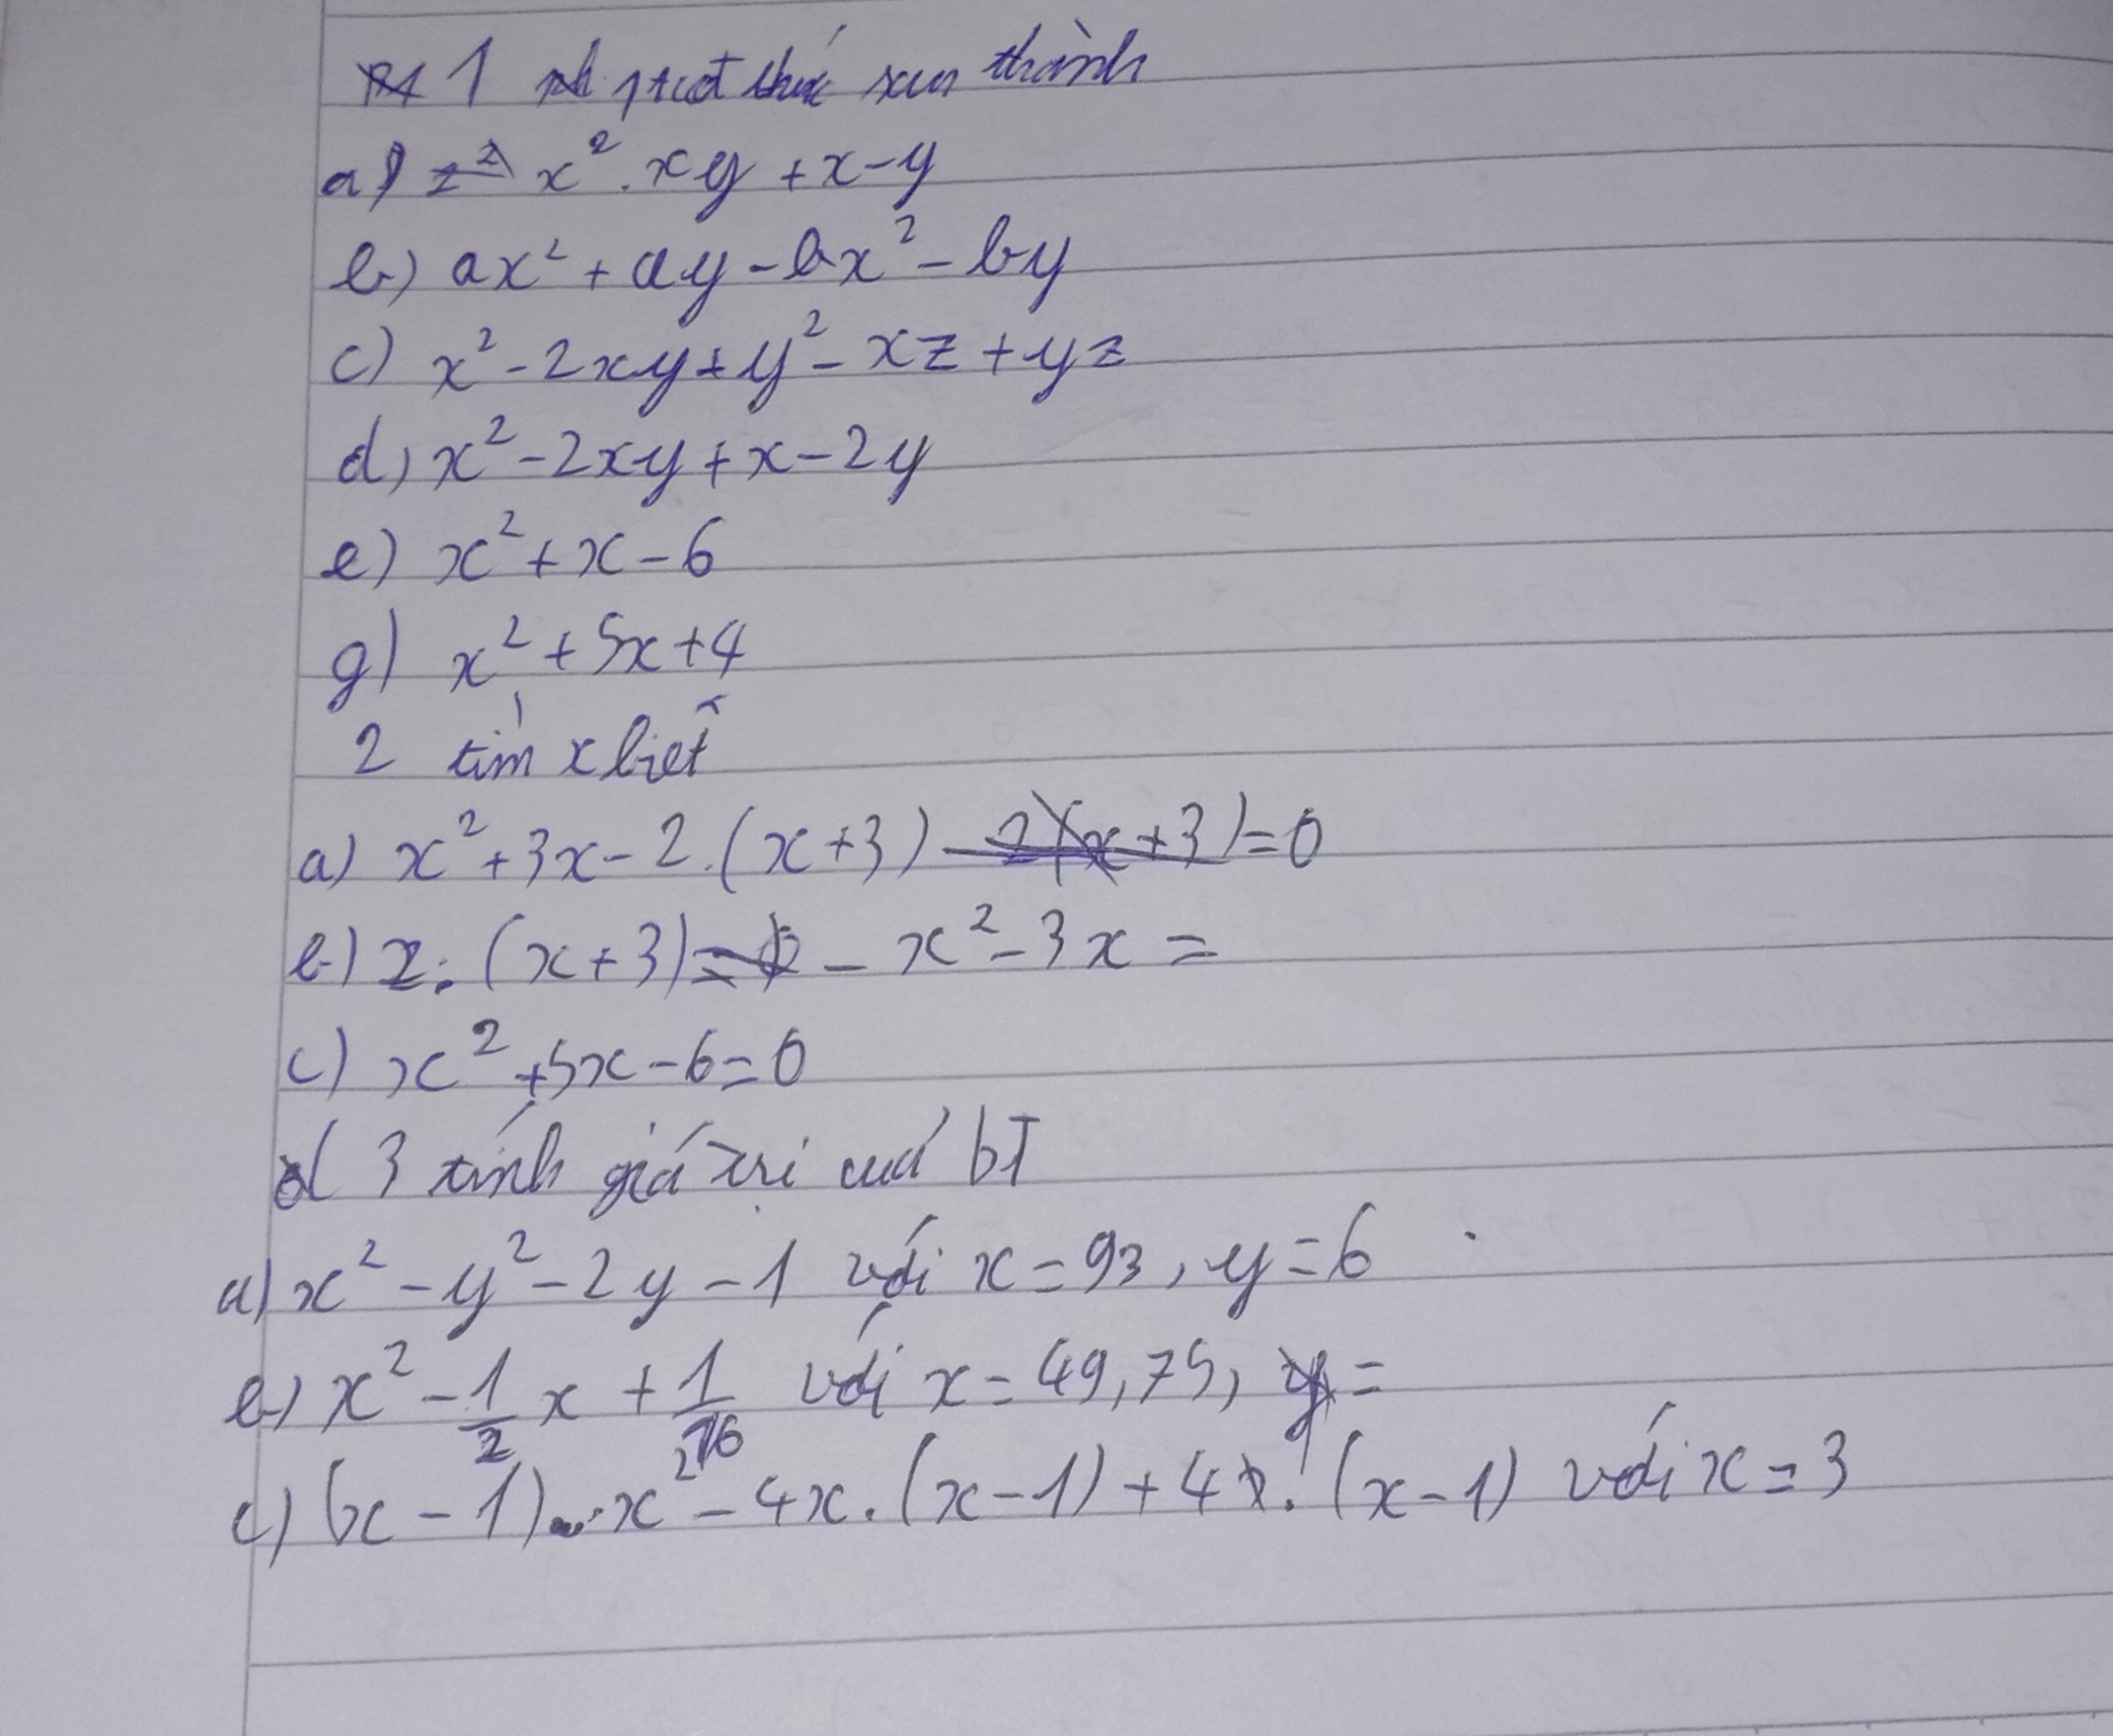 1 thức thành
a) x² . xy + x - y
b) ax² + ay - bx² - by
c) x² - 2xy + y² - xz + yz
d) x² - 2xy + x - 2y
e) x² + x - 6
g) x² + 5x + 4
2 tìm x biết
a) x² + 3x - 2.(x+3) = 0
b) 2.(x+3) - x² - 3x =
c) x² + 5x - 6 = 0
3 tính giá trị cuả bT
a) x² - y² - 2y - 1 với x = 93, y = 6
b) x² - 1/2 x + 1/16 với x = 49,75, =
c) (x - 1) . x² - 4x.(x-1) + 4.(x-1) với x = 3